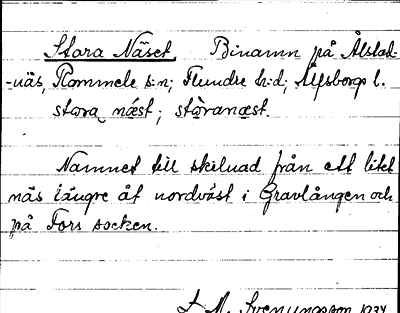 Stora Näset. Binamn på Ålstad-
-näs, Rommele s:n; Flundre h:d; Älfsborgs l.
stora næst; storanæst.
Namnet till skilnad från ett litet
näs längre åt nordväst i Gravlången och
på Fors socken.
Svenungsson 1934